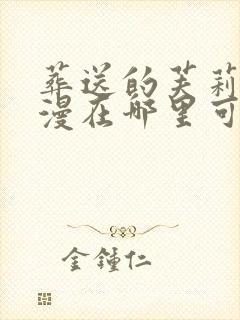 葬送的芙莉
漫在哪里可
金鍾仁